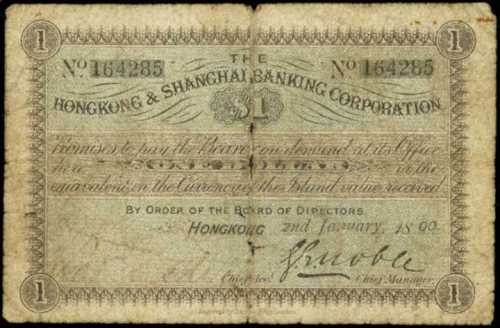 1 1
THE
No. 164285 No. 164285
HONGKONG & SHANGHAI BANKING CORPORATION
$1
Promises to pay the Bearer on demand at its Office
here ONE DOLLAR or the
equivalent in the Currency of the Island value received
BY ORDER OF THE BOARD OF DIRECTORS
HONGKONG 2nd January, 1890
Chief Manager
1 1